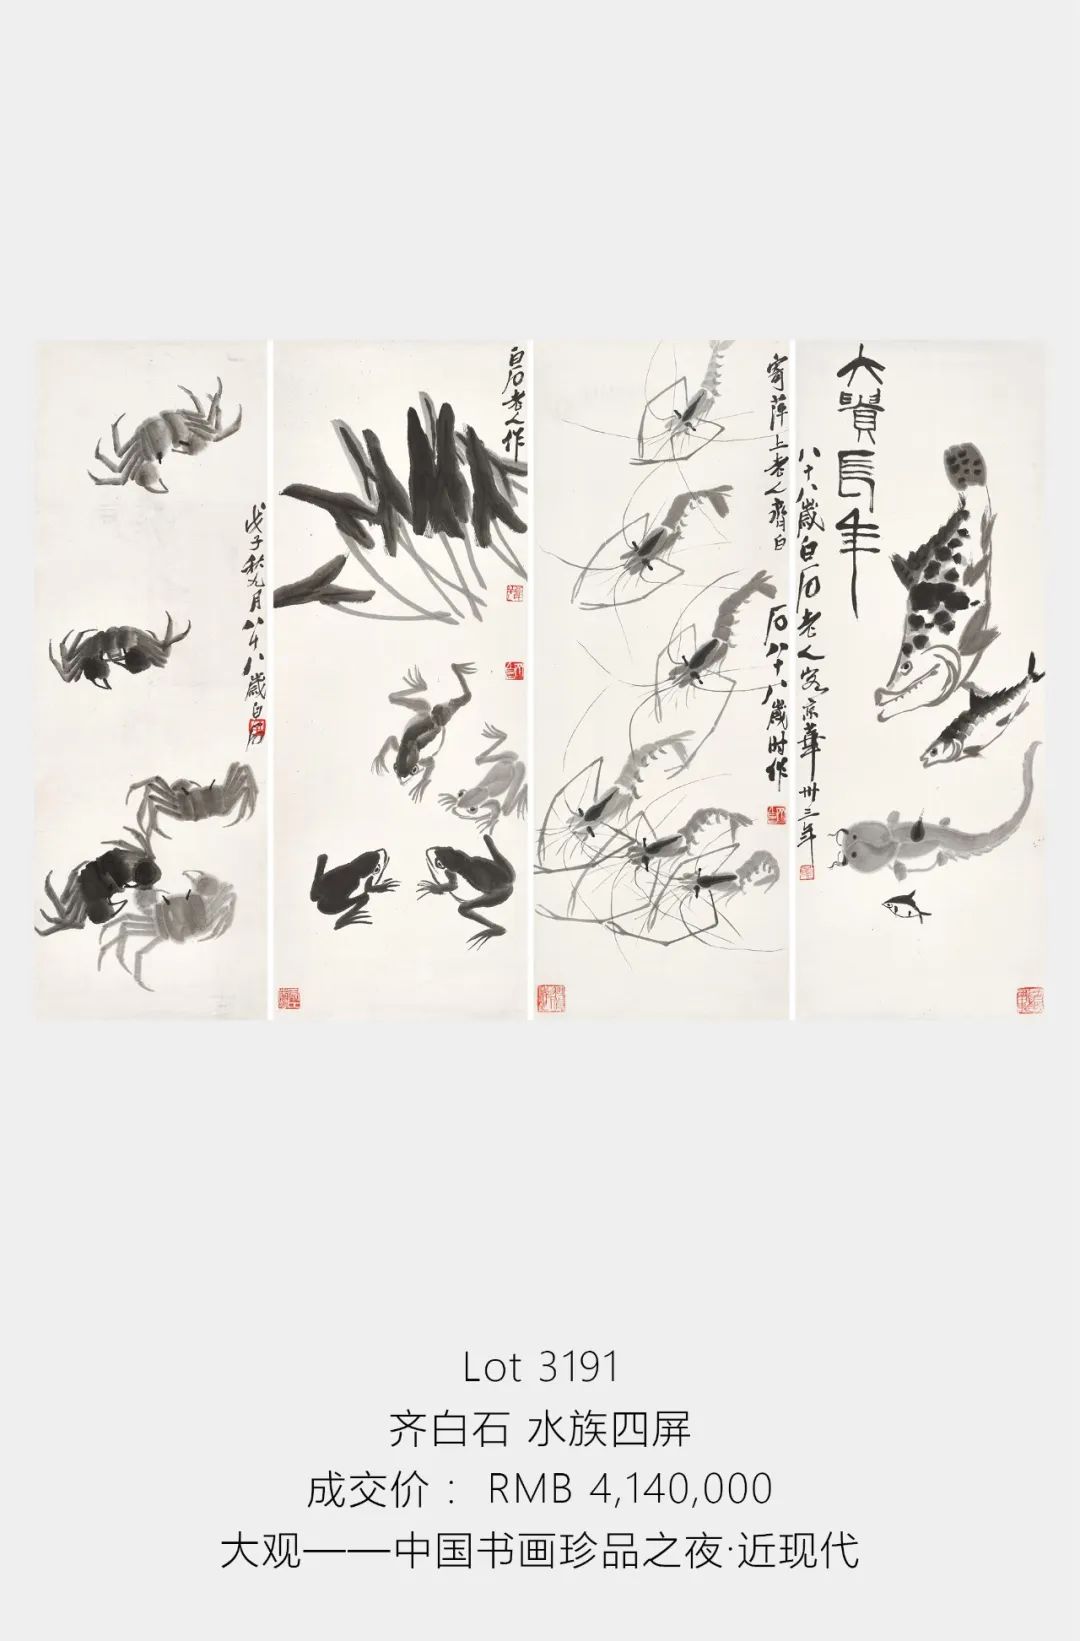 大貴長年
八十八歲白石老人客京華卅三年
寄萍上老人齊白
石八十八歲时作
白石老人作
戊子秋九月八十八歲白石
Lot 3191
齐白石 水族四屏
成交价 : RMB 4,140,000
大观——中国书画珍品之夜·近现代